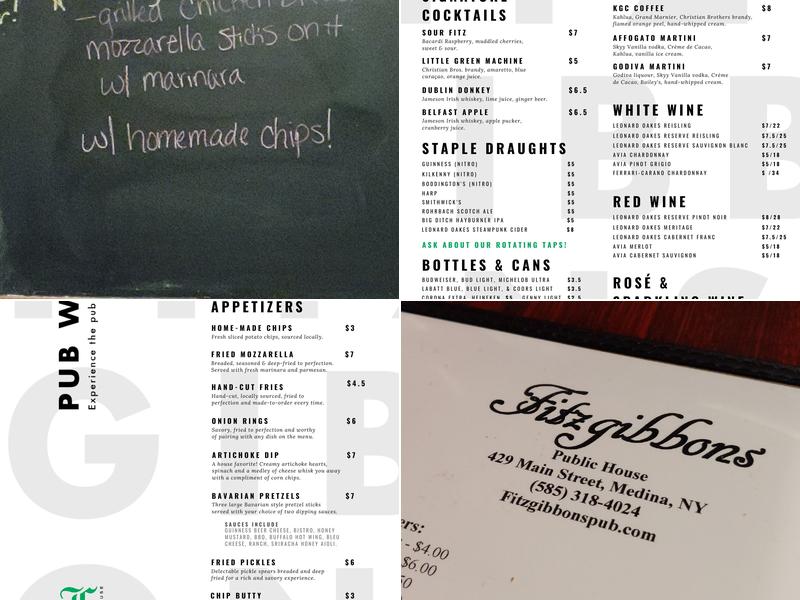 -grilled chicken
mozzarella sticks on it
w/ marinara
w/ homemade chips!
SIGNATURE
COCKTAILS
SOUR FITZ $7
Bacardi Raspberry, muddled cherries,
sweet & sour.
LITTLE GREEN MACHINE $5
Christian Bros. brandy, amaretto, blue
curaçao, orange juice.
DUBLIN DONKEY $6.5
Jameson Irish whiskey, lime juice, ginger beer.
BELFAST APPLE $6.5
Jameson Irish whiskey, apple pucker,
cranberry juice.
STAPLE DRAUGHTS
GUINNESS (NITRO) $5
KILKENNY (NITRO) $5
BODDINGTON'S (NITRO) $5
HARP $5
SMITHWICK'S $5
ROHRBACH SCOTCH ALE $5
BIG DITCH HAYBURNER IPA $5
LEONARD OAKES STEAMPUNK CIDER $8
ASK ABOUT OUR ROTATING TAPS!
BOTTLES & CANS
BUDWEISER, BUD LIGHT, MICHELOB ULTRA $3.5
LABATT BLUE, BLUE LIGHT, & COORS LIGHT $3.5
CORONA EXTRA, HEINEKEN $5 GENNY LIGHT $2.5
KGC COFFEE $8
Kahlua, Grand Marnier, Christian Brothers brandy,
flamed orange peel, hand-whipped cream.
AFFOGATO MARTINI $7
Skyy Vanilla vodka, Crème de Cacao,
Kahlua, vanilla ice cream.
GODIVA MARTINI $7
Godiva liqour, Skyy Vanilla vodka, Crème
de Cacao, Bailey's, hand-whipped cream.
WHITE WINE
LEONARD OAKES REISLING $7/22
LEONARD OAKES RESERVE REISLING $7.5/25
LEONARD OAKES RESERVE SAUVIGNON BLANC $7.5/25
AVIA CHARDONNAY $5/18
AVIA PINOT GRIGIO $5/18
FERRARI-CARANO CHARDONNAY $ /34
RED WINE
LEONARD OAKES RESERVE PINOT NOIR $8/28
LEONARD OAKES MERITAGE $7/22
LEONARD OAKES CABERNET FRANC $7.5/25
AVIA MERLOT $5/18
AVIA CABERNET SAUVIGNON $5/18
ROSÉ &
SPARKLING WINE
PUB W
Experience the pub
APPETIZERS
HOME-MADE CHIPS $3
Fresh sliced potato chips, sourced locally.
FRIED MOZZARELLA $7
Breaded, seasoned & deep-fried to perfection.
Served with fresh marinara and parmesan.
HAND-CUT FRIES $4.5
Hand-cut, locally sourced, fried to
perfection and made-to-order every time.
ONION RINGS $6
Savory, fried to perfection and worthy
of pairing with any dish on the menu.
ARTICHOKE DIP $7
A house favorite! Creamy artichoke hearts,
spinach and a medley of cheese whisk you away
with a compliment of corn chips.
BAVARIAN PRETZELS $7
Three large Bavarian style pretzel sticks
served with your choice of two dipping sauces.
SAUCES INCLUDE
GUINNESS BEER CHEESE, BISTRO, HONEY
MUSTARD, BBQ, BUFFALO HOT WING, BLEU
CHEESE, RANCH, SRIRACHA HONEY AIOLI.
FRIED PICKLES $6
Delectable pickle spears breaded and deep
fried for a rich and savory experience.
CHIP BUTTY $3
Fitzgibbons
Public House
429 Main Street, Medina, NY
(585) 318-4024
Fitzgibbonspub.com
ers:
- $4.00
$6.00
50